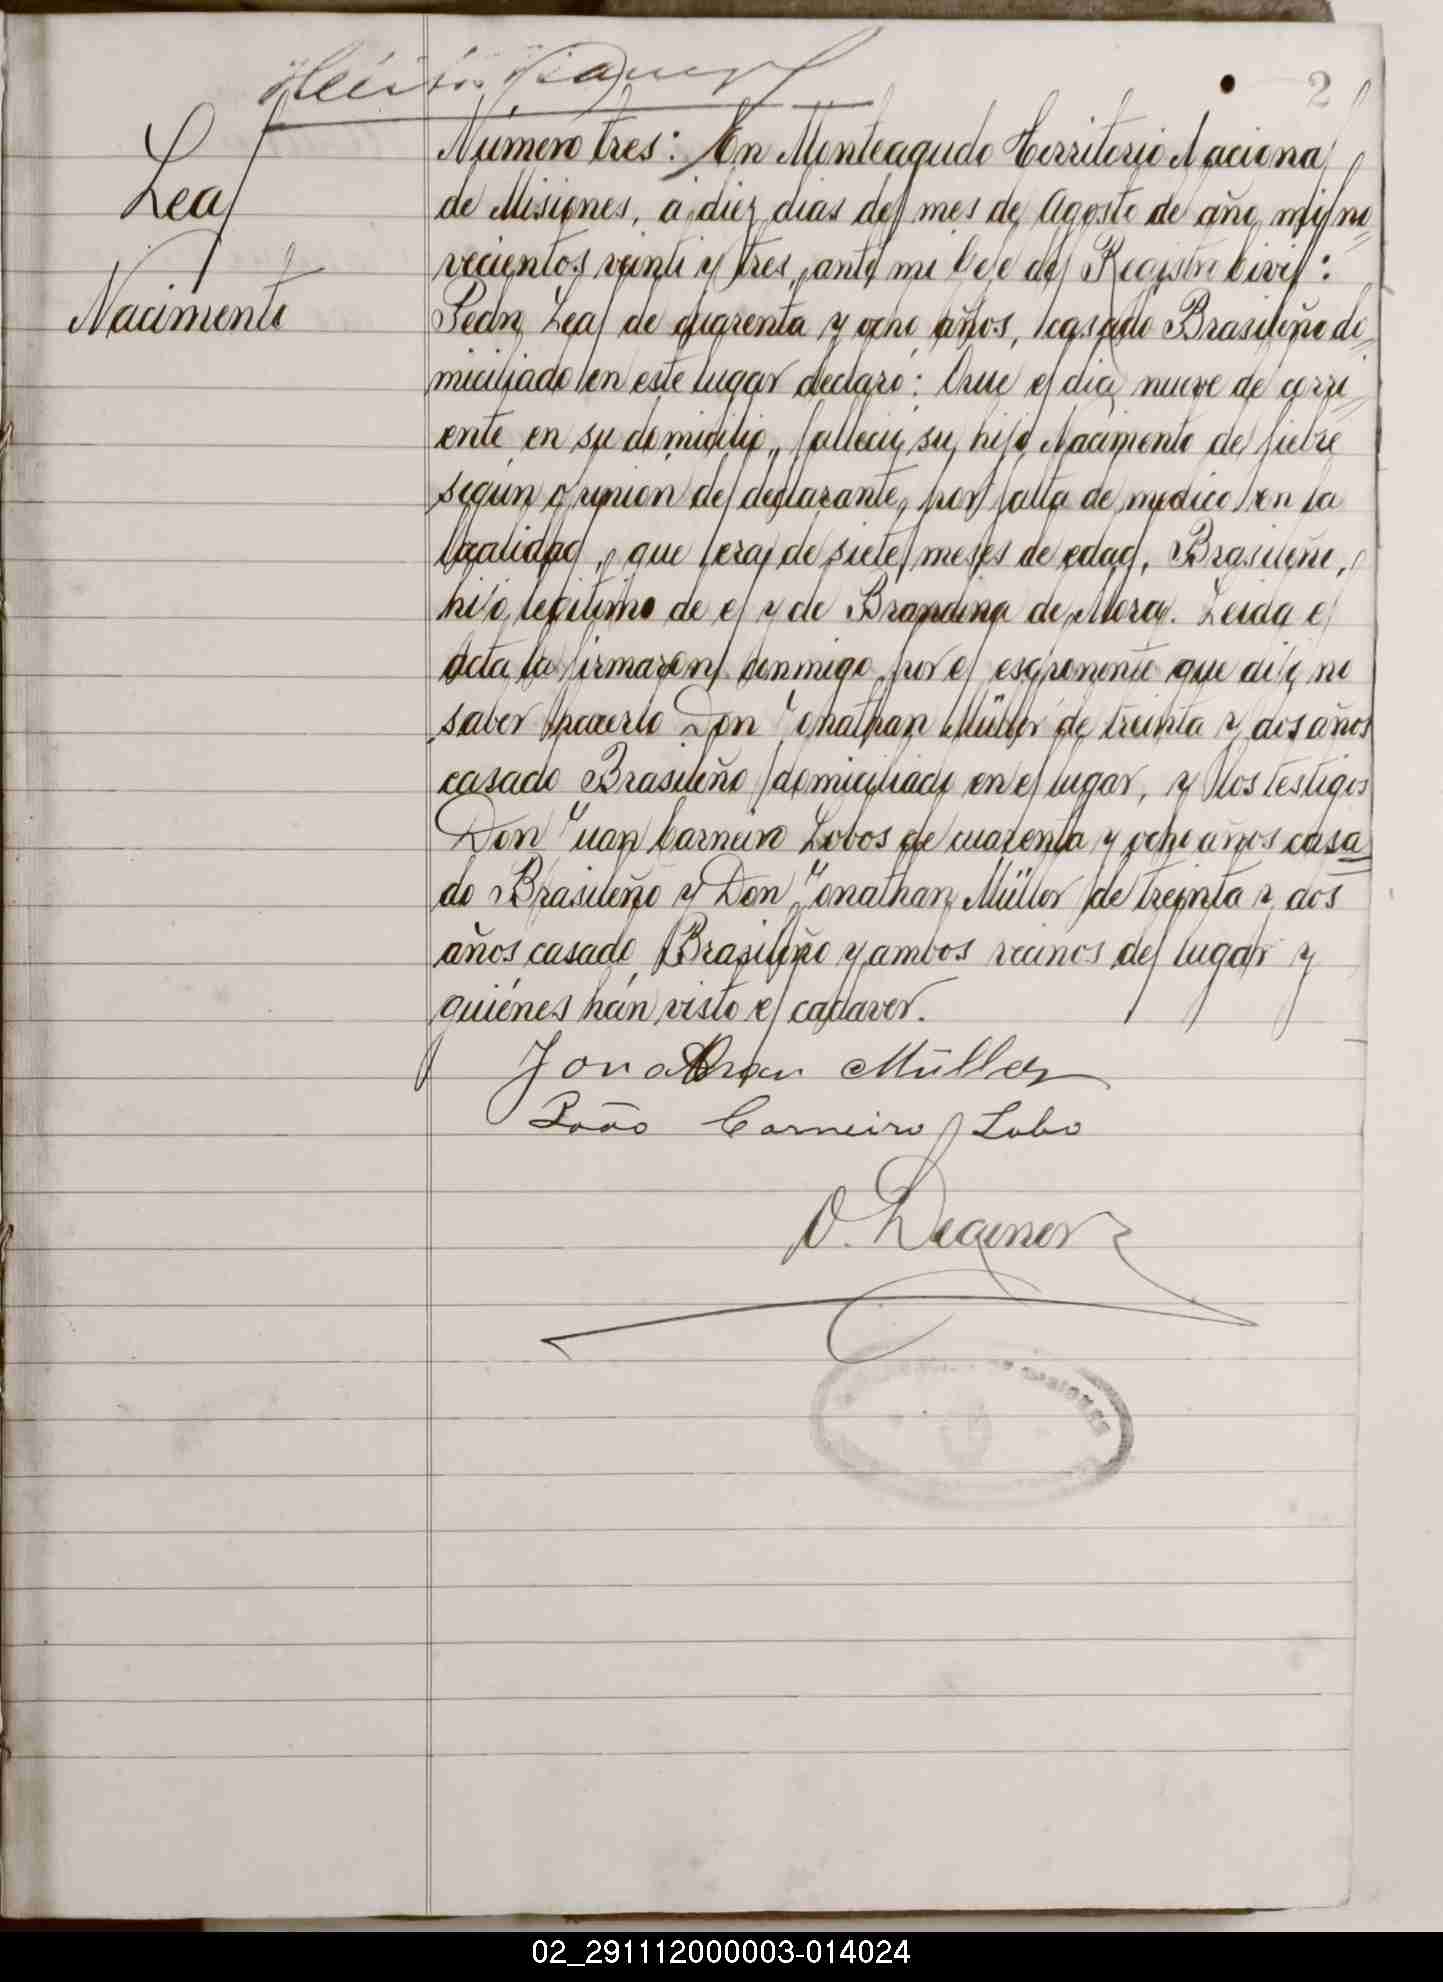 2
Leal
Nacimento
Número tres: En Monteagudo Territorio Nacional
de Misiones, a diez dias del mes de Agosto de año mil no=
vecientos veinti y tres, ante mi Jefe del Registro Civil:
Pedro Leal de cuarenta y ocho años, casado Brasileño do=
miciliado en este lugar declaró: Que el dia nueve de corri=
ente en su domicilio, falleció su hijo Nacimento de fiebre
según opinion del declarante, por falta de medico en la
localidad, que era de siete meses de edad, Brasileño,
hijo legitimo de el y de Brandina de Mora. Leida el
acta la firmaron conmigo, por el esponente que dijo no
saber hacerlo Don Jonathan Müller de treinta y dos años
casado Brasileño domiciliado en el lugar, y los testigos
Don Juan Carneiro Lobos de cuarenta y ocho años casa=
do Brasileño y Don Jonathan Müller de treinta y dos
años casado, Brasileño y ambos vecinos del lugar y
quiénes hán visto el cadaver.
Jonathan Müller
João Carneiro Lobo
O. Degener
MISIONES
02_291112000003-014024